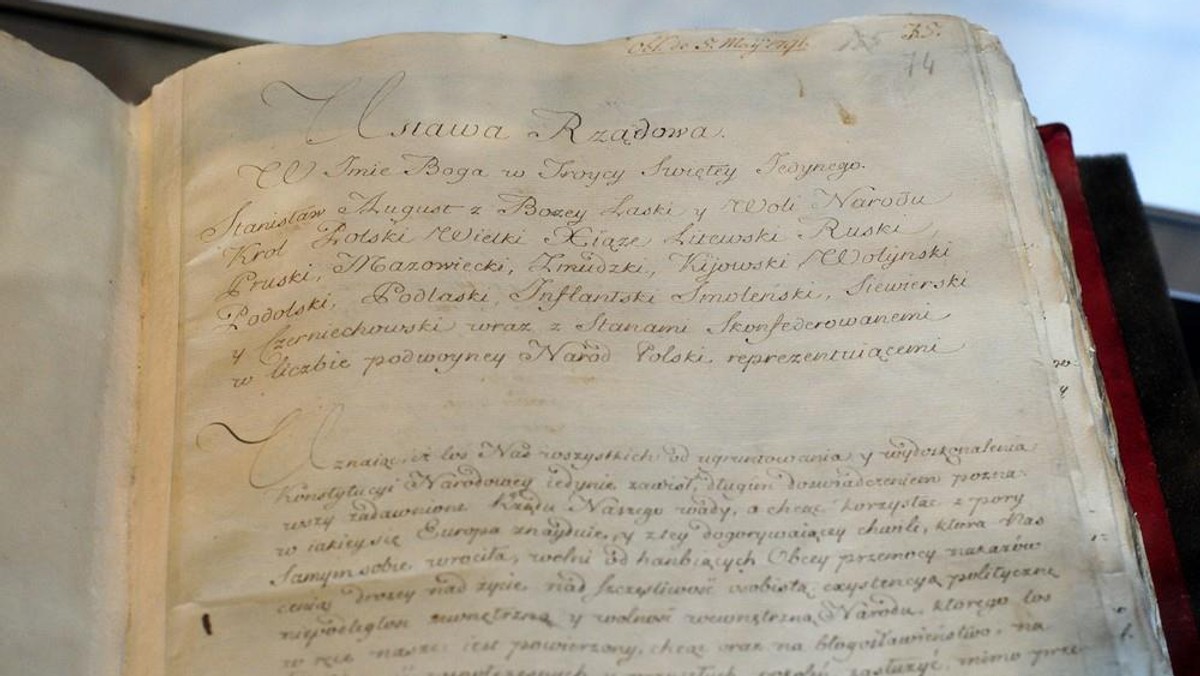 Obl. de 5. Maij 1791. 155 75.
74
Ustawa Rządowa.
W Imie Boga w Troycy Swiętey Jedynego.
Stanisław August z Bozey Łaski y Woli Narodu
Krol Polski Wielki Xiąze Litewski Ruski,
Pruski, Mazowiecki, Zmudzki, Kijowski, Wołynski
Podolski, Podlaski, Inflantski Smoleński, Siewierski
y Czerniechowski wraz z Stanami Skonfederowanemi
w liczbie podwoyney Naród Polski reprezentuiącemi
Uznaiąc, iż los Nas wszystkich od ugruntowania y wydoskonalenia
Konstytucyi Narodowey iedynie zawisł, długim doswiadczeniem pozna-
wszy zadawnione Rządu Naszego wady, a chcąc korzystac z pory
w iakiey się Europa znayduie, y z tey dogorywaiącey chwili, ktora Nas
Samym sobie wrociła, wolni od hanbiących Obcey przemocy nakazów
ceniąc drozey nad zycie, nad szczęsliwość osobistą, exystencyą polityczną
niepodległosc zewnętrzną y wolnosc wewnętrzną Narodu, ktorego los
w ręce nasze iest powierzony, chcąc oraz na błogosławieństwo, na
zasłuzyć, mimo prze-